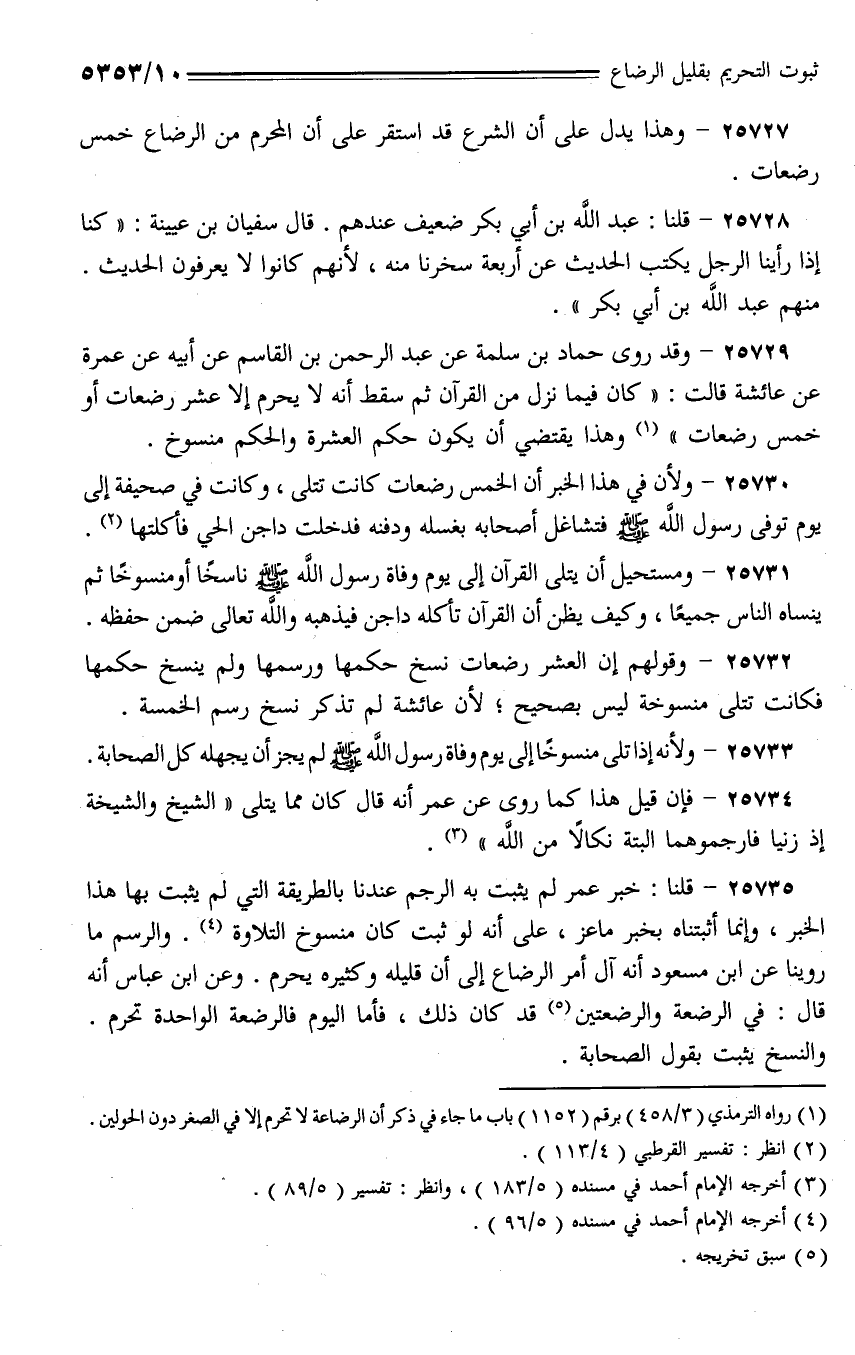 ثبوت التحريم بقليل الرضاع ٥٣٥٣/١٠
٢٥٧٢٧ - وهذا يدل على أن الشرع قد استقر على أن المحرم من الرضاع خمس
رضعات .
٢٥٧٢٨ - قلنا : عبد اللَّه بن أبي بكر ضعيف عندهم . قال سفيان بن عيينة : « كنا
إذا رأينا الرجل يكتب الحديث عن أربعة سخرنا منه ، لأنهم كانوا لا يعرفون الحديث .
منهم عبد اللَّه بن أبي بكر » .
٢٥٧٢٩ - وقد روى حماد بن سلمة عن عبد الرحمن بن القاسم عن أبيه عن عمرة
عن عائشة قالت : « كان فيما نزل من القرآن ثم سقط أنه لا يحرم إلا عشر رضعات أو
خمس رضعات » (١) وهذا يقتضي أن يكون حكم العشرة والحكم منسوخ .
٢٥٧٣٠ - ولأن في هذا الخبر أن الخمس رضعات كانت تتلى ، وكانت في صحيفة إلى
يوم توفى رسول اللَّه ﷺ فتشاغل أصحابه بغسله ودفنه فدخلت داجن الحي فأكلتها (٢) .
٢٥٧٣١ - ومستحيل أن يتلى القرآن إلى يوم وفاة رسول اللَّه ﷺ ناسخًا أومنسوخًا ثم
ينساه الناس جميعًا ، وكيف يظن أن القرآن تأكله داجن فيذهبه واللَّه تعالى ضمن حفظه .
٢٥٧٣٢ - وقولهم إن العشر رضعات نسخ حكمها ورسمها ولم ينسخ حكمها
فكانت تتلى منسوخة ليس بصحيح ؛ لأن عائشة لم تذكر نسخ رسم الخمسة .
٢٥٧٣٣ - ولأنه إذا تلى منسوخًا إلى يوم وفاة رسول اللَّه ﷺ لم يجز أن يجهله كل الصحابة .
٢٥٧٣٤ - فإن قيل هذا كما روى عن عمر أنه قال كان مما يتلى « الشيخ والشيخة
إذ زنيا فارجموهما البتة نكالًا من اللَّه » (٣) .
٢٥٧٣٥ - قلنا : خبر عمر لم يثبت به الرجم عندنا بالطريقة التي لم يثبت بها هذا
الخبر ، وإنما أثبتناه بخبر ماعز ، على أنه لو ثبت كان منسوخ التلاوة (٤) . والرسم ما
روينا عن ابن مسعود أنه آل أمر الرضاع إلى أن قليله وكثيره يحرم . وعن ابن عباس أنه
قال : في الرضعة والرضعتين (٥) قد كان ذلك ، فأما اليوم فالرضعة الواحدة تحرم .
والنسخ يثبت بقول الصحابة .
(١) رواه الترمذي ( ٤٥٨/٣ ) برقم ( ١١٥٢ ) باب ما جاء في ذكر أن الرضاعة لا تحرم إلا في الصغر دون الحولين .
(٢) انظر : تفسير القرطبي ( ١١٣/٤ ) .
(٣) أخرجه الإمام أحمد في مسنده ( ١٨٣/٥ ) ، وانظر : تفسير ( ٨٩/٥ ) .
(٤) أخرجه الإمام أحمد في مسنده ( ٩٦/٥ ) .
(٥) سبق تخريجه .